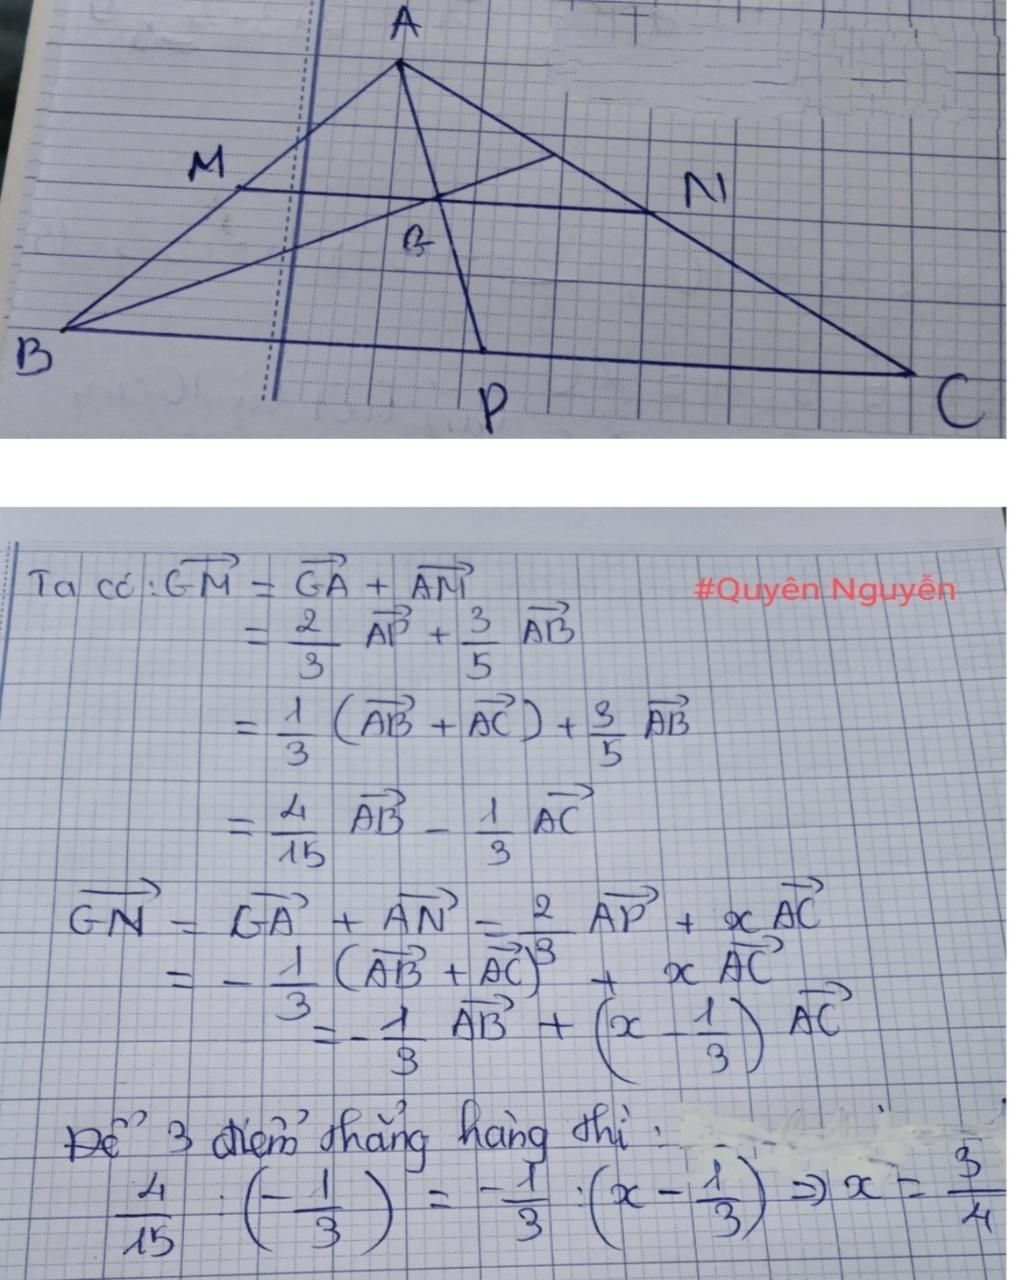 A
M
N
G
B
P
C
Ta có: GM = GA + AM
#Quyên Nguyễn
= 2/3 AP + 3/5 AB
= 1/3 (AB + AC) + 3/5 AB
= 4/15 AB - 1/3 AC
GN = GA + AN = 2/3 AP + x AC
= - 1/3 (AB + AC) + x AC
= - 1/3 AB + (x - 1/3) AC
Để 3 điểm thẳng hàng thì:
4/15 · (- 1/3) = - 1/3 : (x - 1/3) => x = 3/4